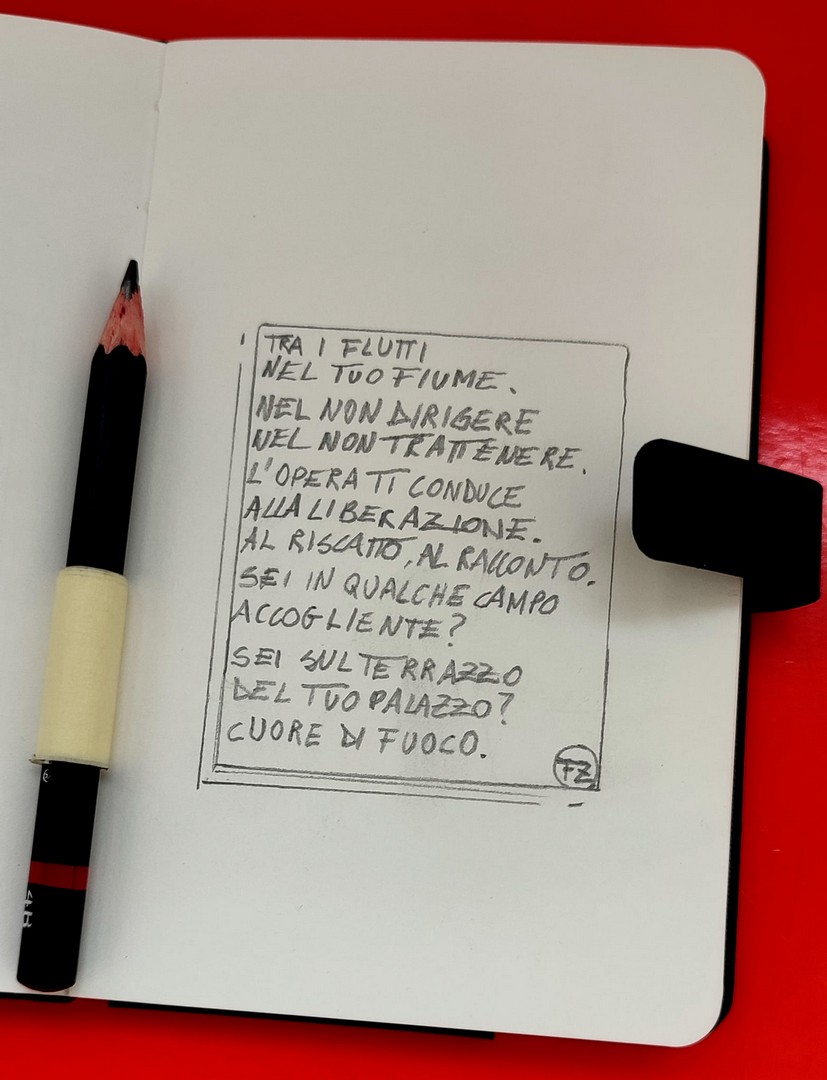 TRA I FLUTTI
NEL TUO FIUME.
NEL NON DIRIGERE
NEL NON TRATTENERE.
L'OPERA TI CONDUCE
ALLA LIBERAZIONE.
AL RISCATTO, AL RACCONTO.
SEI IN QUALCHE CAMPO
ACCOGLIENTE?
SEI SUL TERRAZZO
DEL TUO PALAZZO?
CUORE DI FUOCO.
FZ
4B